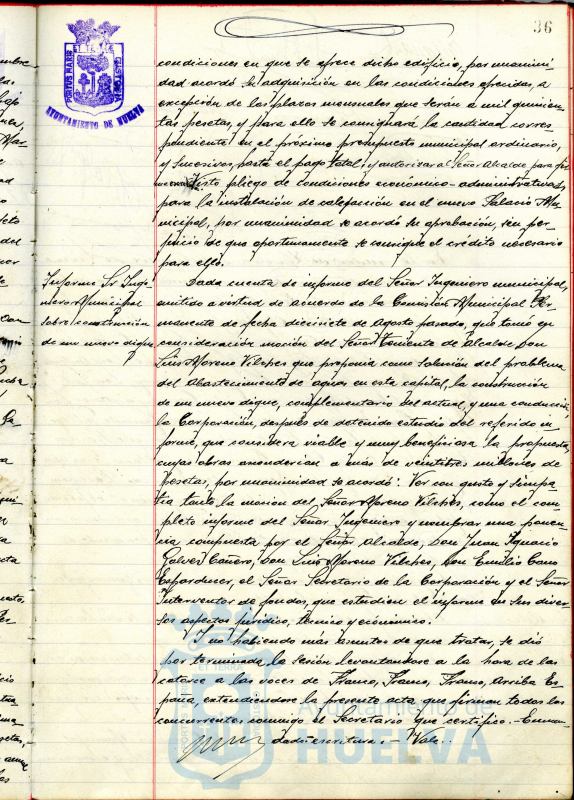 36
PORTUS MARIS ET TERRE CUSTODIA
AYUNTAMIENTO DE HUELVA
condiciones en que se ofrece dicho edificio, por unanimi
dad acordó su adquisición en las condiciones ofrecidas, a
excepción de los plazos mensuales que serán a mil quinien
tas pesetas, y para ello se consignará la cantidad corres
pondiente en el próximo presupuesto municipal ordinario,
y sucesivos, hasta el pago total, y autorizar al Señor Alcalde para
Visto pliego de condiciones económico-administrativas,
para la instalación de calefacción en el nuevo Palacio Mu
nicipal, por unanimidad se acordó su aprobación, sin per
juicio de que oportunamente se consigne el crédito necesario
para ello.
Informe Sr Inge
niero Municipal
sobre construcción
de un nuevo dique
Dada cuenta de informe del Señor Ingeniero municipal,
emitido a virtud de acuerdo de la Comisión Municipal Per
manente de fecha diecisiete de Agosto pasado, que tomó en
consideración moción del Señor Teniente de Alcalde, Don
Luis Moreno Vilches que proponía como solución del problema
del Abastecimiento de aguas en esta capital, la construcción
de un nuevo dique, complementario del actual, y una conducción,
la Corporación, después de detenido estudio del referido in
forme, que considera viable y muy beneficiosa la propuesta,
cuyas obras ascenderían a más de veintitres millones de
pesetas, por unanimidad se acordó: Ver con gusto y simpa
tía tanto la moción del Señor Moreno Vilches, como el com
pleto informe del Señor Ingeniero y nombrar una ponen
cia compuesta por el Señor Alcalde, Don Juan Ignacio
Galvez Cañero, Don Luis Moreno Vilches, Don Emilio Cano
el Señor Secretario de la Corporación y el Señor
Interventor de fondos, que estudien el informe en sus diver
sos aspectos jurídico, técnico y económico.
Y no habiendo más asuntos de que tratar, se dió
por terminada la sesión levantandose a la hora de las
catorce a las voces de Franco, Franco, Franco, Arriba Es
paña, extendiendose la presente acta que firman todos los
concurrentes conmigo el Secretario que certifico.- Enmen
dado: escritura.- Vale.-
Ayuntamiento de
HUELVA